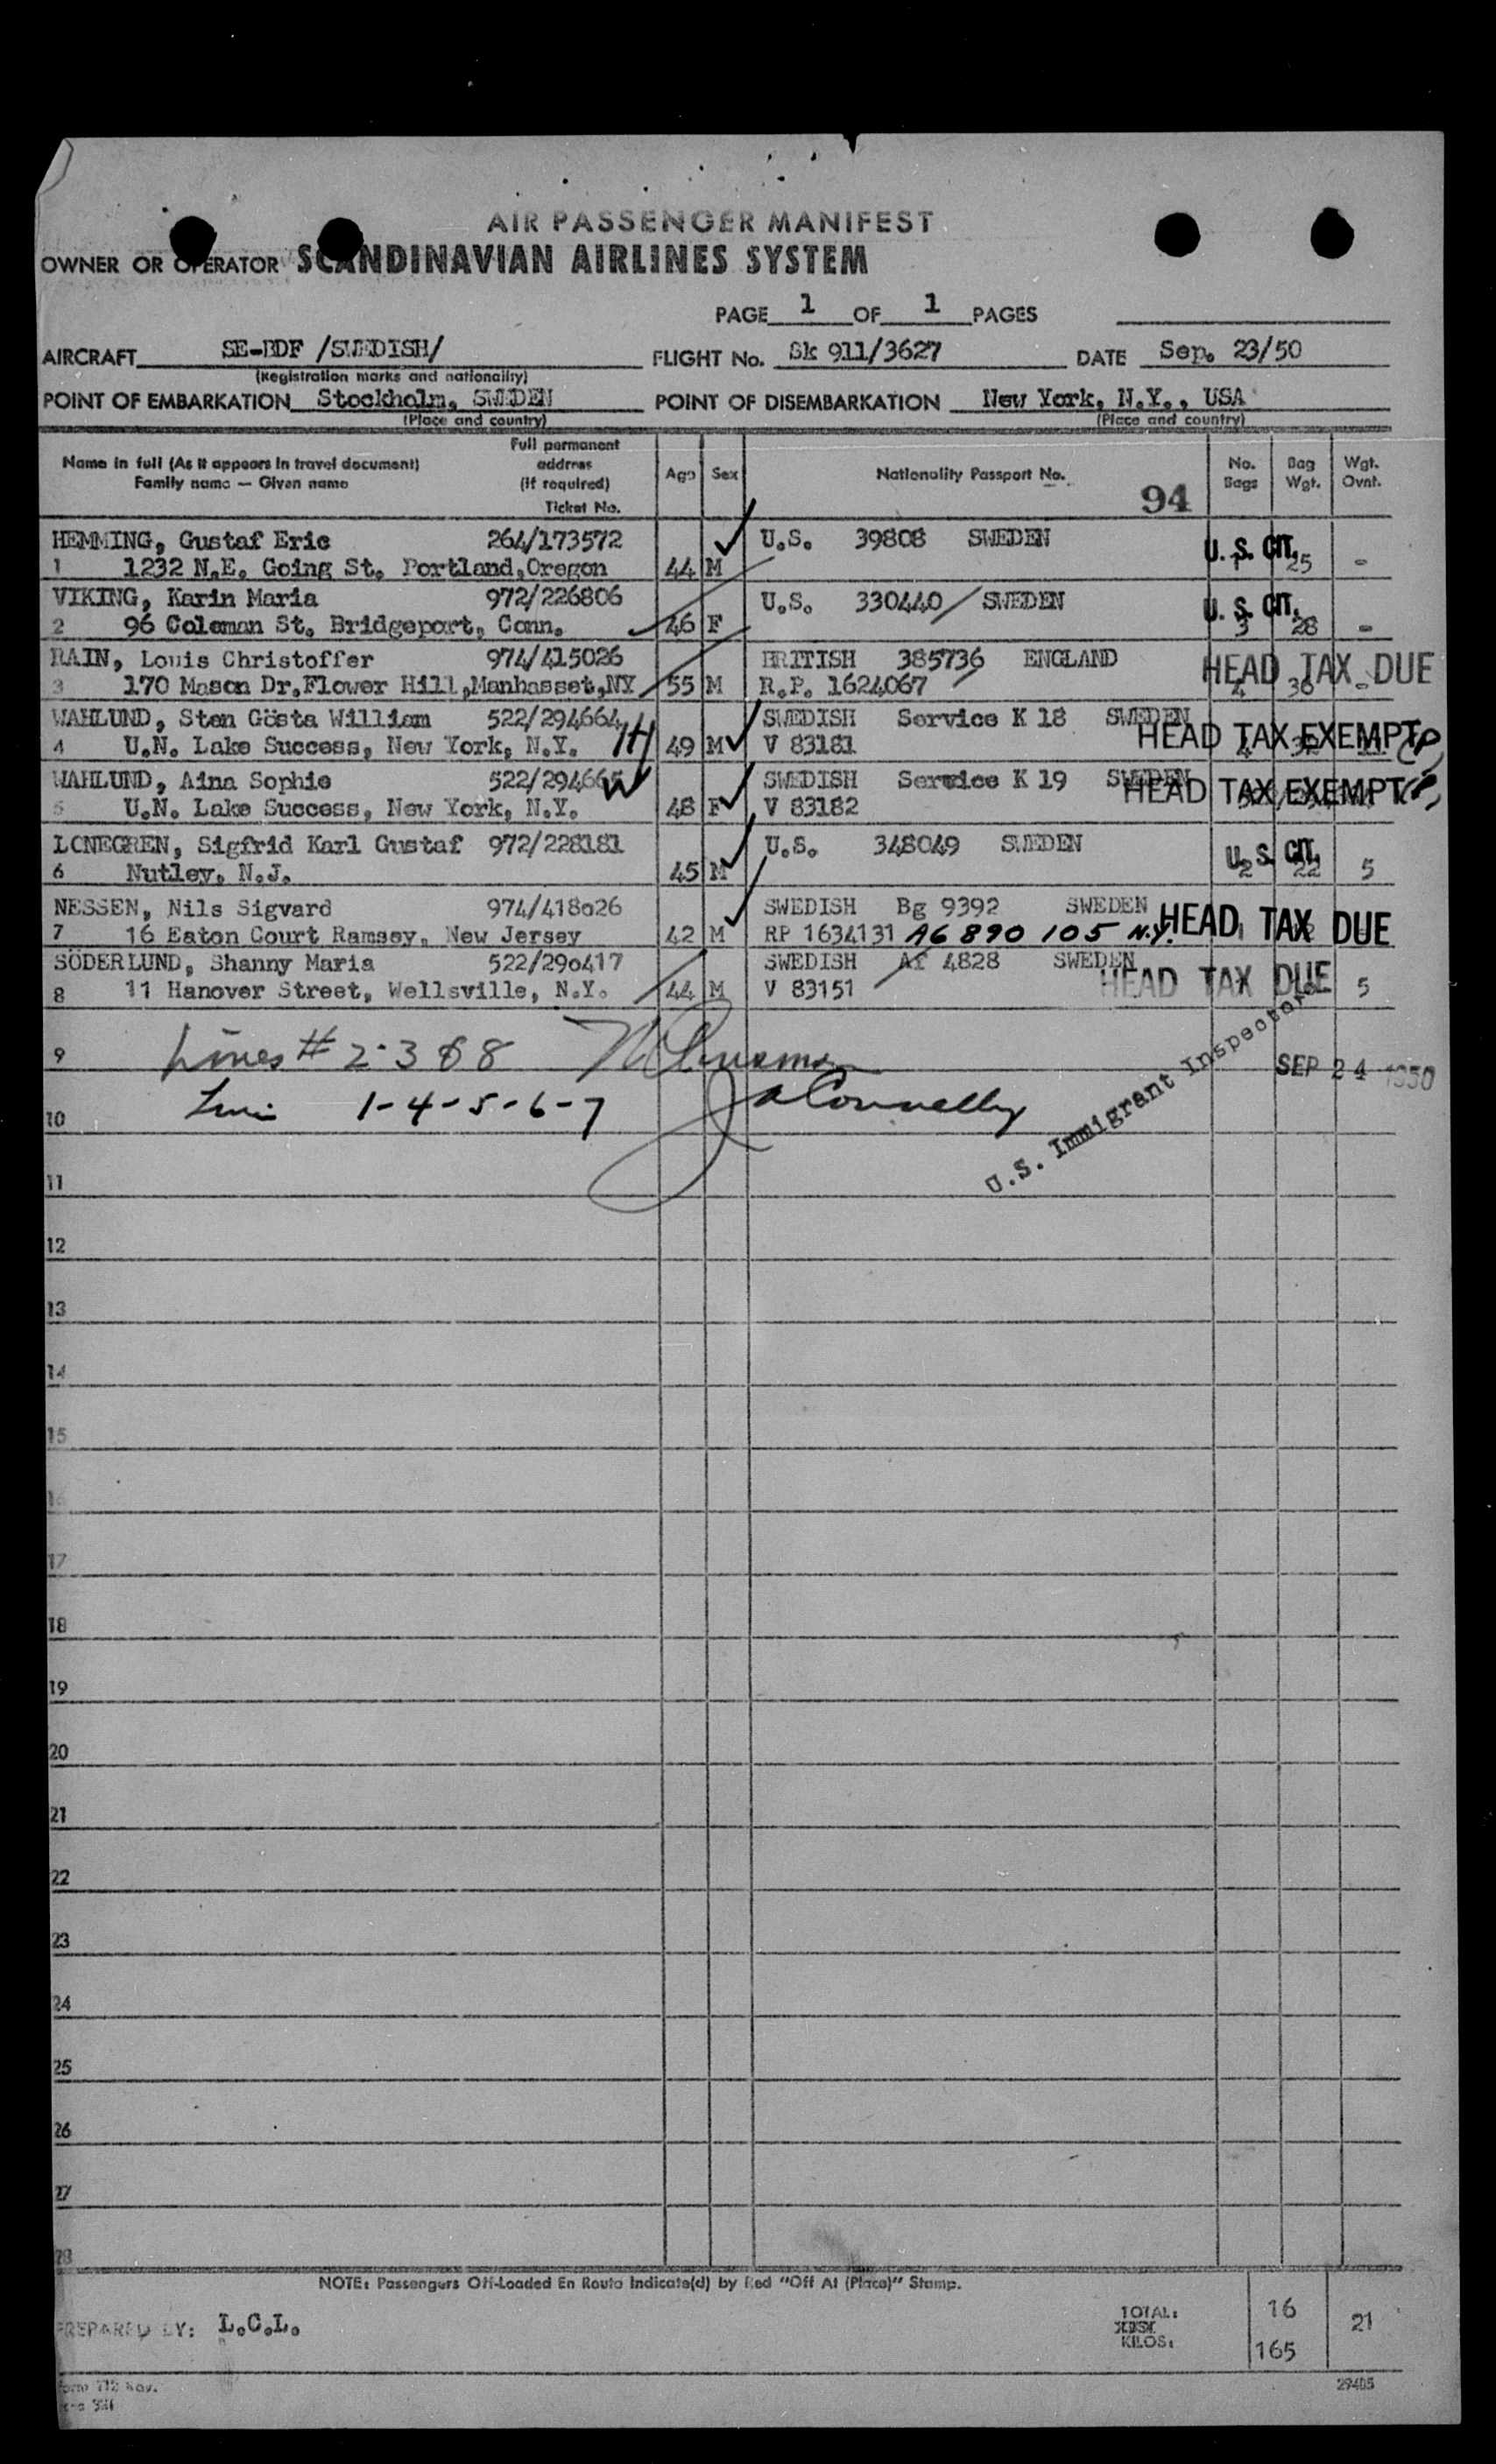 AIR PASSENGER MANIFEST
OWNER OR OPERATOR SCANDINAVIAN AIRLINES SYSTEM
PAGE 1 OF 1 PAGES
AIRCRAFT SE-BDF /SWEDISH/ FLIGHT No. Sk 911/3627 DATE Sep. 23/50
(Registration marks and nationality)
POINT OF EMBARKATION Stockholm, SWEDEN POINT OF DISEMBARKATION New York, N.Y., USA
(Place and country) (Place and country)
Name in full (As it appears in travel document) Full permanent address (If required) Age Sex Nationality Passport No. No. Bags Bag Wgt. Wgt. Ovnt.
Family name — Given name Ticket No. 94
HEMMING, Gustaf Eric 264/173572 U.S. 39808 SWEDEN U.S. CIT.
1 1232 N.E. Going St. Portland,Oregon 44 M 1 25 -
VIKING, Karin Maria 972/226806 U.S. 330440 SWEDEN U.S. CIT.
2 96 Coleman St. Bridgeport, Conn. 46 F 3 28 -
RAIN, Louis Christoffer 974/415026 BRITISH 385736 ENGLAND HEAD TAX DUE
3 170 Mason Dr.Flower Hill,Manhasset,NY 55 M R.P. 1624067 4 36 -
WAHLUND, Sten Gösta William 522/294664 SWEDISH Service K 18 SWEDEN
4 U.N. Lake Success, New York, N.Y. H 49 M V 83181 HEAD TAX EXEMPT
WAHLUND, Aina Sophie 522/294665 W SWEDISH Service K 19 SWEDEN HEAD TAX EXEMPT
5 U.N. Lake Success, New York, N.Y. 48 F V 83182
LONEGREN, Sigfrid Karl Gustaf 972/228181 U.S. 348049 SWEDEN U.S. CIT.
6 Nutley, N.J. 45 M 2 22 5
NESSEN, Nils Sigvard 974/418o26 SWEDISH Bg 9392 SWEDEN HEAD TAX DUE
7 16 Eaton Court Ramsey, New Jersey 42 M RP 1634131 A6 890 105 N.Y.
SÖDERLUND, Shanny Maria 522/29o417 SWEDISH Af 4828 SWEDEN HEAD TAX DUE
8 11 Hanover Street, Wellsville, N.Y. 44 M V 83151 5
9 Lines # 2-3 & 8 SEP 24 1950
10 1-4-5-6-7 Connelly
U.S. Immigrant Inspector
11
12
13
14
15
16
17
18
19
20
21
22
23
24
25
26
27
28
NOTE: Passengers Off-Loaded En Route Indicate(d) by Red "Off At (Place)" Stamp.
PREPARED BY: L.C.L. TOTAL: 16 21
KILOS: 165
Form 112 Rev. 29405